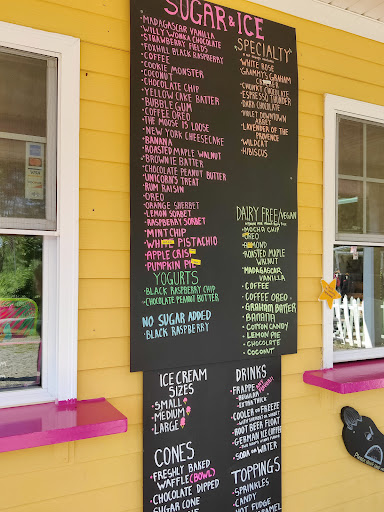 SUGAR & ICE
MADAGASCAR VANILLA
WILLY WONKA CHOCOLATE
STRAWBERRY FIELDS
FOXHILL BLACK RASPBERRY
COFFEE
COOKIE MONSTER
COCONUT
CHOCOLATE CHIP
YELLOW CAKE BATTER
BUBBLE GUM
THE MOOSE IS LOOSE
NEW YORK CHEESECAKE
BANANA
ROASTED MAPLE WALNUT
BROWNIE BATTER
CHOCOLATE PEANUT BUTTER
UNICORN'S TREAT
RUM RAISIN
OREO
ORANGE SHERBET
LEMON SORBET
RASPBERRY SORBET
MINT CHIP
PISTACHIO
APPLE CRISP
PUMPKIN PIE
YOGURTS
BLACK RASPBERRY CHIP
CHOCOLATE PEANUT BUTTER
NO SUGAR ADDED
BLACK RASPBERRY
SPECIALTY
WHITE ROSE
GRAMMY'S GRAHAM
CHUNKY CHOCOLATE
ESPRESSO THUNDER
DARK CHOCOLATE
VIOLET DOWNTOWN
ABBEY
LAVENDER OF THE
PROVENCE
WILDCAT
HIBISCUS
DAIRY FREE/VEGAN
MOCHA CHIP
OREO
ALMOND
ROASTED MAPLE
WALNUT
MADAGASCAR
VANILLA
COFFEE
COFFEE OREO
GRAHAM BUTTER
BANANA
COTTON CANDY
LEMON PIE
CHOCOLATE
COCONUT
ICE CREAM
SIZES
SMALL
MEDIUM
LARGE
CONES
FRESHLY BAKED
WAFFLE (BOWL)
CHOCOLATE DIPPED
SUGAR CONE
DRINKS
FRAPPE
REGULAR
EXTRA THICK
COOLER OR FREEZE
ROOT BEER FLOAT
GERMAN ICE COFFEE
SODA OR WATER
TOPPINGS
SPRINKLES
CANDY
HOT FUDGE